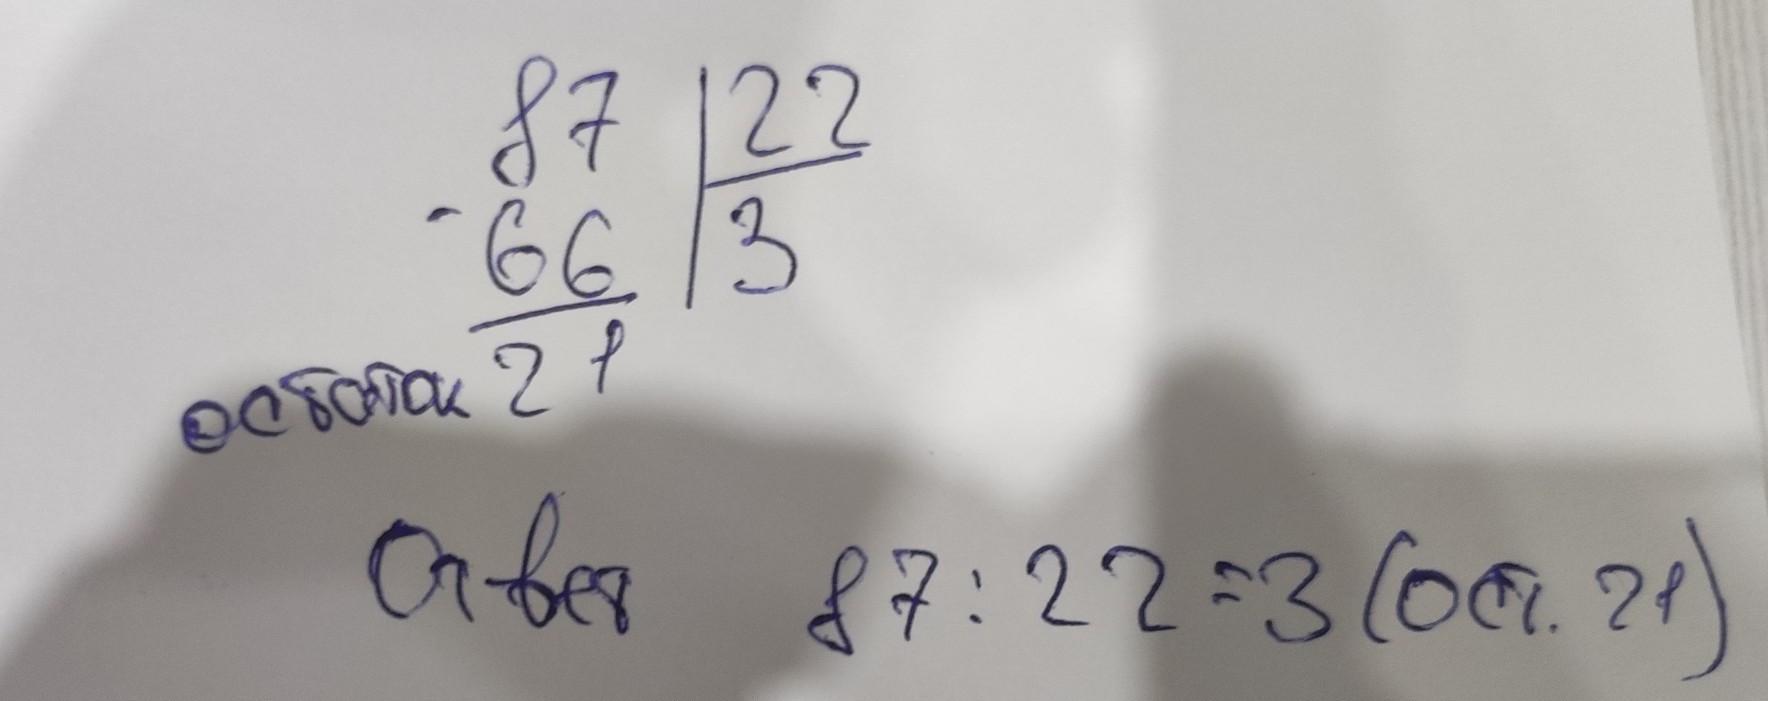 87 | 22
- 66 | 3
остаток 21
Ответ 87 : 22 = 3 (ост. 21)